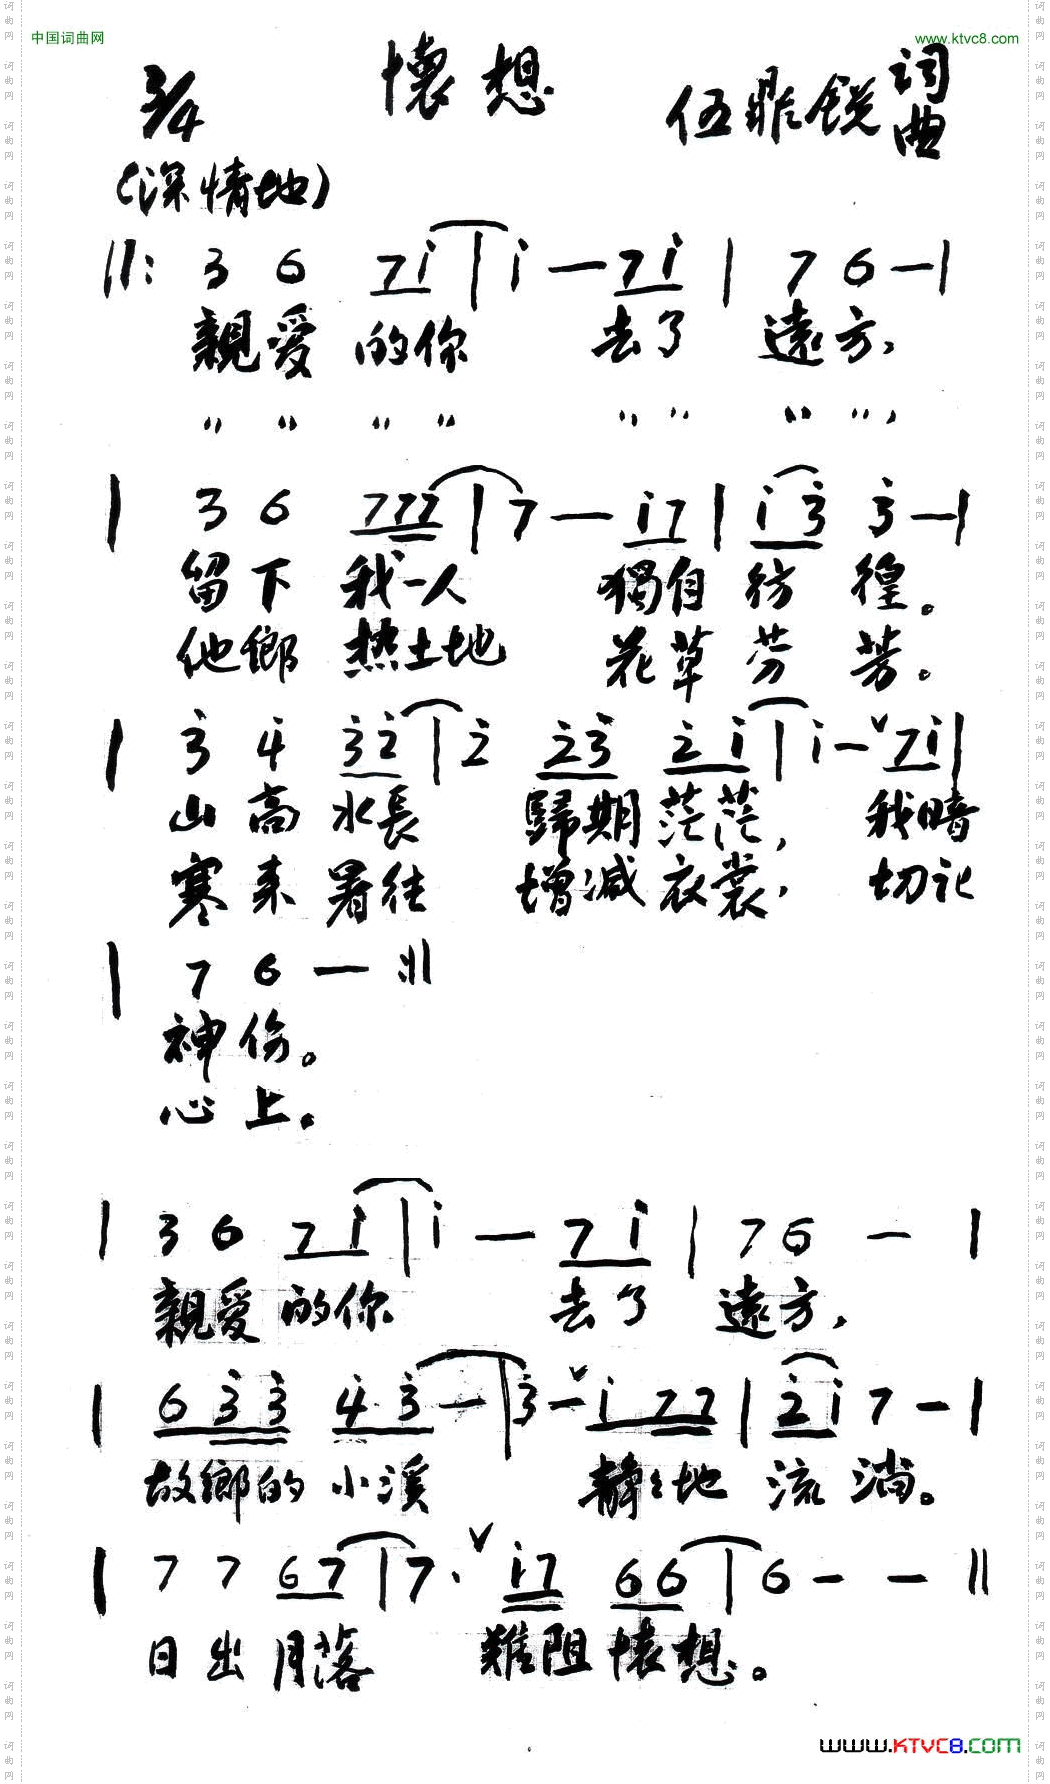 中国词曲网
www.ktvc8.com
懷想
3/4
伍乖銳 词曲
(深情地)
||: 3 6 7i | i — 7i | 7 6 — |
親愛 的你 去了 遠方,
" " " " " " " ",
| 3 6 777 | 7 — i7 | i3 3 — |
留下 我一人 獨自 彷徨。
他鄉 热土地 花草 芬芳。
| 3 4 32 | 2 23 2i | i — ∨ 7i |
山高 水長 歸期 茫茫, 我暗
寒来 暑往 增減 衣裳, 切记
| 7 6 — :||
神伤。
心上。
| 3 6 7i | i — 7i | 7 6 — |
親愛的你 去了 遠方,
| 6 3 3 4 3 — | 3 — ∨ i 7 7 | 2 i 7 — |
故鄉的 小溪 静々地 流淌。
| 7 7 67 | 7· ∨ i7 66 | 6 — — ||
日出 月落 難阻 懷想。
www.KTVC8.COM